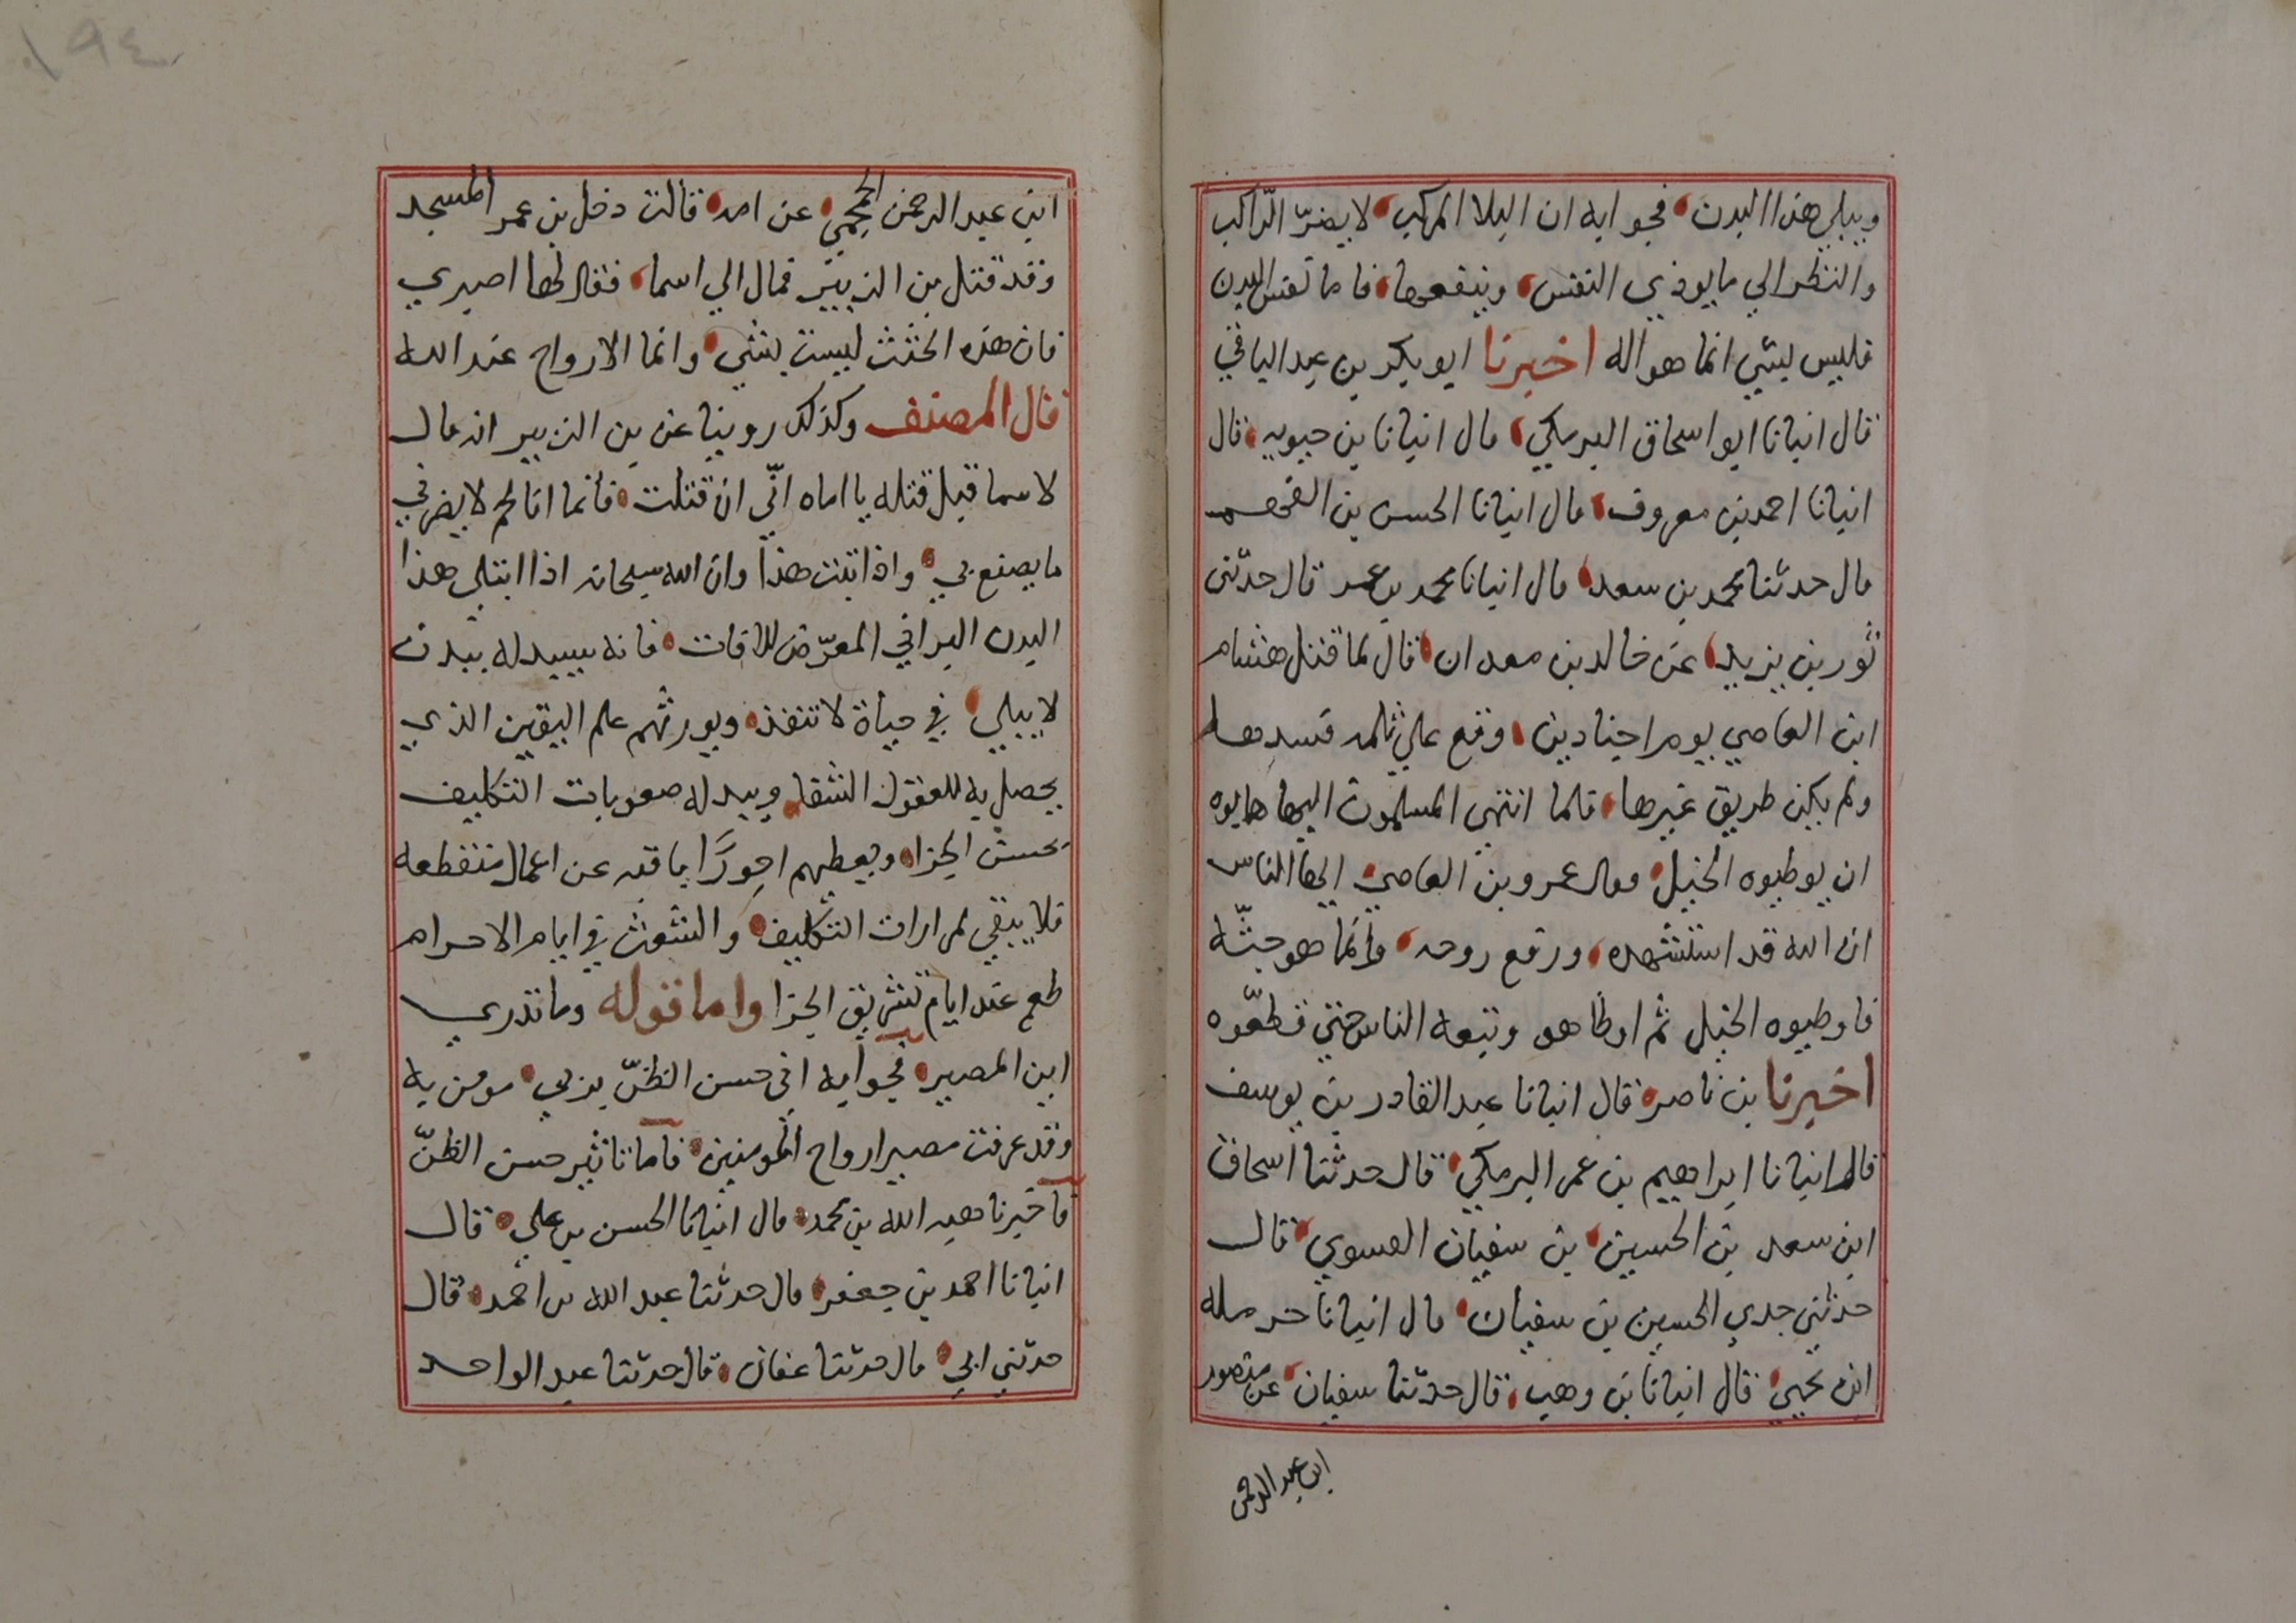 ويبلي هذا البدن فجوابه ان البلا المركب لا يضرّ الرّاكب
والنظر الي ما يوذي النفس وينفعها فاما نفس البدن
فليس بشي انما هو اله اخبرنا ابو بكر بن عبد الباقي
قال انبانا ابو اسحاق البرمكي قال انبانا بن حيويه قال
انبانا احمد بن معروف قال انبانا الحسن بن الفهم
قال حدثنا محمد بن سعد قال انبانا محمد بن عمر قال حدثني
ثور بن يزيد عن خالد بن معدان قال لما قتل هشام
ابن العاصي يوم اجنادين وقع علي ثلمه فسدها
ولم يكن طريق غيرها فلما انتهي المسلمون اليها هابوه
ان يوطيوه الخيل وقال عمرو بن العاصي ايها الناس
ان الله قد استشهده ورفع روحه وانما هو جثّه
فاوطيوه الخيل ثم اوطاهو وتبعه الناس حتي قطّعوه
اخبرنا بن ناصر قال انبانا عبد القادر بن يوسف
قال انبانا ابراهيم بن عمر البرمكي قال حدثنا اسحاق
ابن سعد بن الحسين بن سفيان الفسوي قال
حدثني جدي الحسين بن سفيان قال انبانا حرمله
ابن يحيي قال انبانا بن وهب قال حدثنا سفيان عن منصور
ابن عبد الرحمن
١٩٤
ابن عبد الرحمن الحجمي عن امه قالت دخل بن عمر المسجد
وقد قتل بن الزبير فمال الي اسما فقال لها اصبري
فان هذه الجثث ليست بشي وانما الارواح عند الله
قال المصنف وكذلك روينا عن بن الزبير انه قال
لاسما قبل قتله يا اماه انّي ان قتلت فانما انا لحم لا يضرني
ما يصنع بي واذا ثبت هذا وان الله سبحانه اذا ابتلي هذا
البدن البراني المعرّض للافات فانه سيبدله ببدن
لا يبلي في حياة لا تنفذ ويورثهم علم اليقين الذي
يحصل به للعقول الشفا ويبدله صعوبات التكليف
بحسن الجزا ويعطيهم اجورًا باقيه عن اعمال منقطعه
فلا يبقي لمرارات التكليف والشعث في ايام الاحرام
طعم عند ايام تشريق الجزا واما قوله وما تدري
اين المصير فجوابه اني حسن الظنّ بربي مومن به
وقد عرفت مصير ارواح المومنين فاما تاثير حسن الظنّ
فاخبرنا هبه الله بن محمد قال انبانا الحسن بن علي قال
انبانا احمد بن جعفر قال حدثنا عبد الله بن احمد قال
حدثني ابي قال حدثنا عفان قال حدثنا عبد الواحد